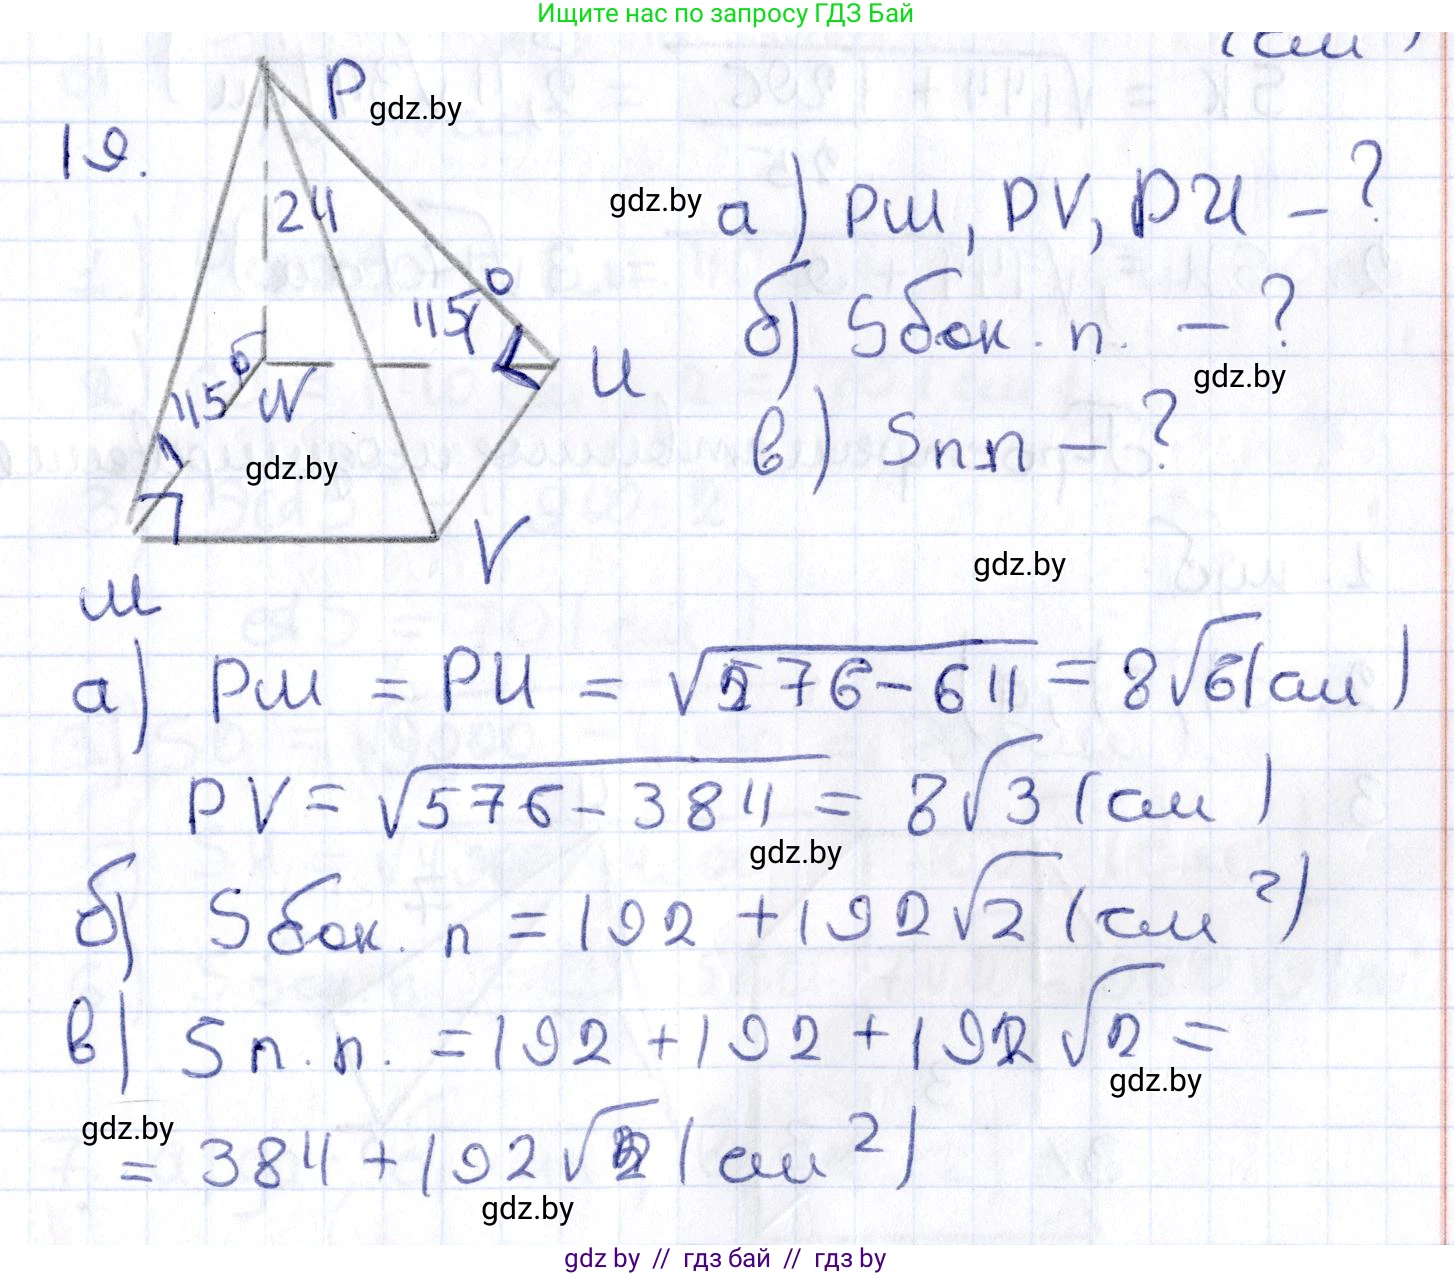 Ищите нас по запросу ГДЗ Бай
(см)
P
gdz.by
19.
24
gdz.by
а) PM, PV, PU - ?
45°
б) Sбок. п. - ?
U
gdz.by
45°
N
в) Sп.п - ?
gdz.by
V
gdz.by
M
а) PM = PU = √576-64 = 8√6(см)
PV = √576-384 = 8√3 (см)
gdz.by
б) Sбок. п = 192 + 192√2 (см²)
в) Sп.п. = 192 + 192 + 192√2 =
gdz.by
gdz.by
= 384 + 192√2 (см²)
gdz.by
gdz by // гдз бай // гдз by